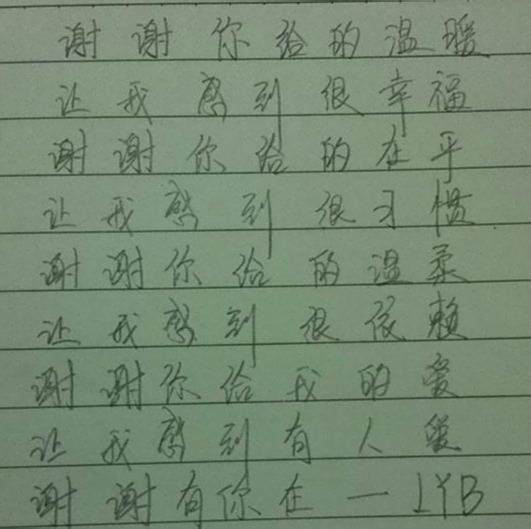 谢谢你给的温暖
让我感到很幸福
谢谢你给的在乎
让我感到很习惯
谢谢你给的温柔
让我感到很依赖
谢谢你给我的爱
让我感到有人爱
谢谢有你在一LYB